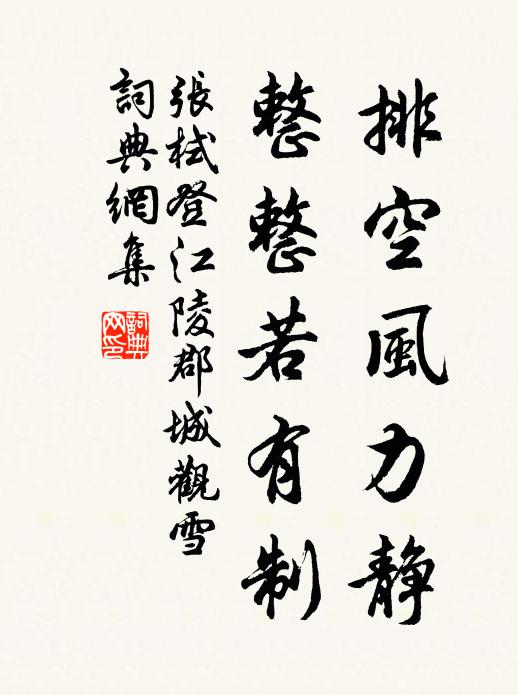 排空風力静
整整若有制
張栻登江陵郡城觀雪
詞典網集
詞典
网印